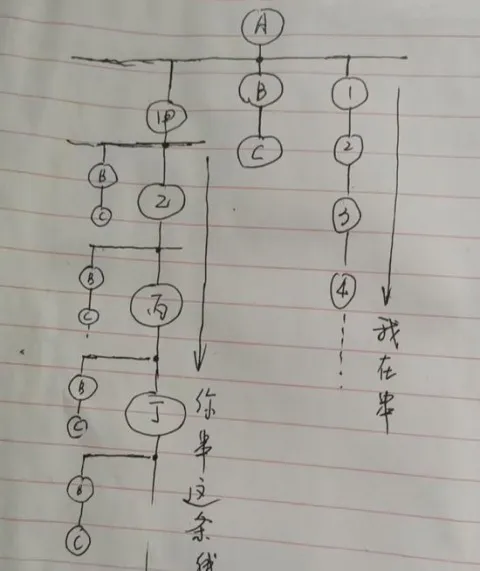 A
B
C
1
2
3
4
我在串
B
C
乙
B
C
丙
B
C
丁
B
C
你串这条线